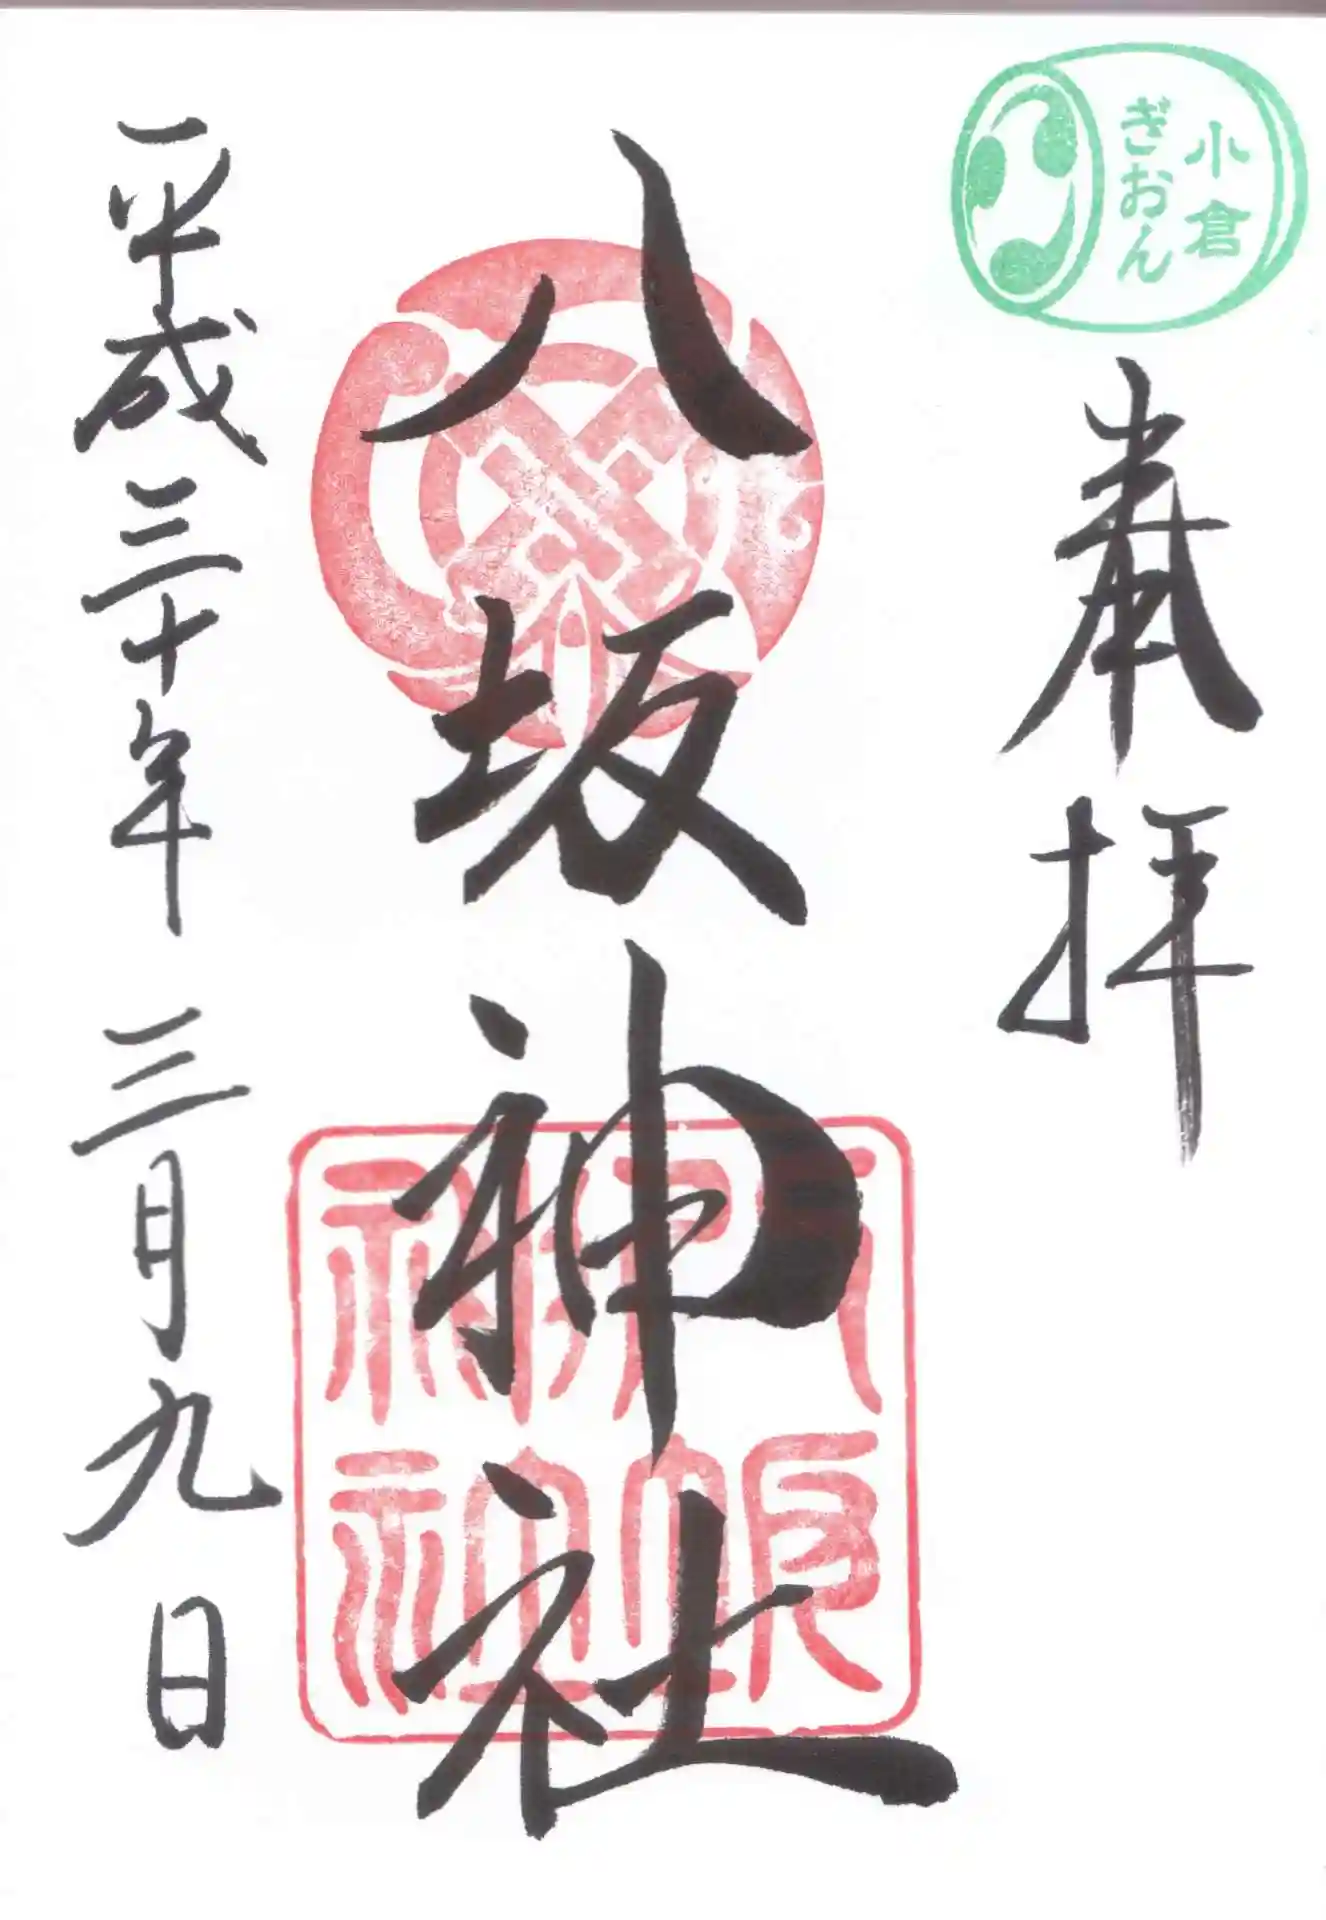 小倉
ぎおん
奉拝
八坂神社
八坂
神社
平成三十年 三月九日